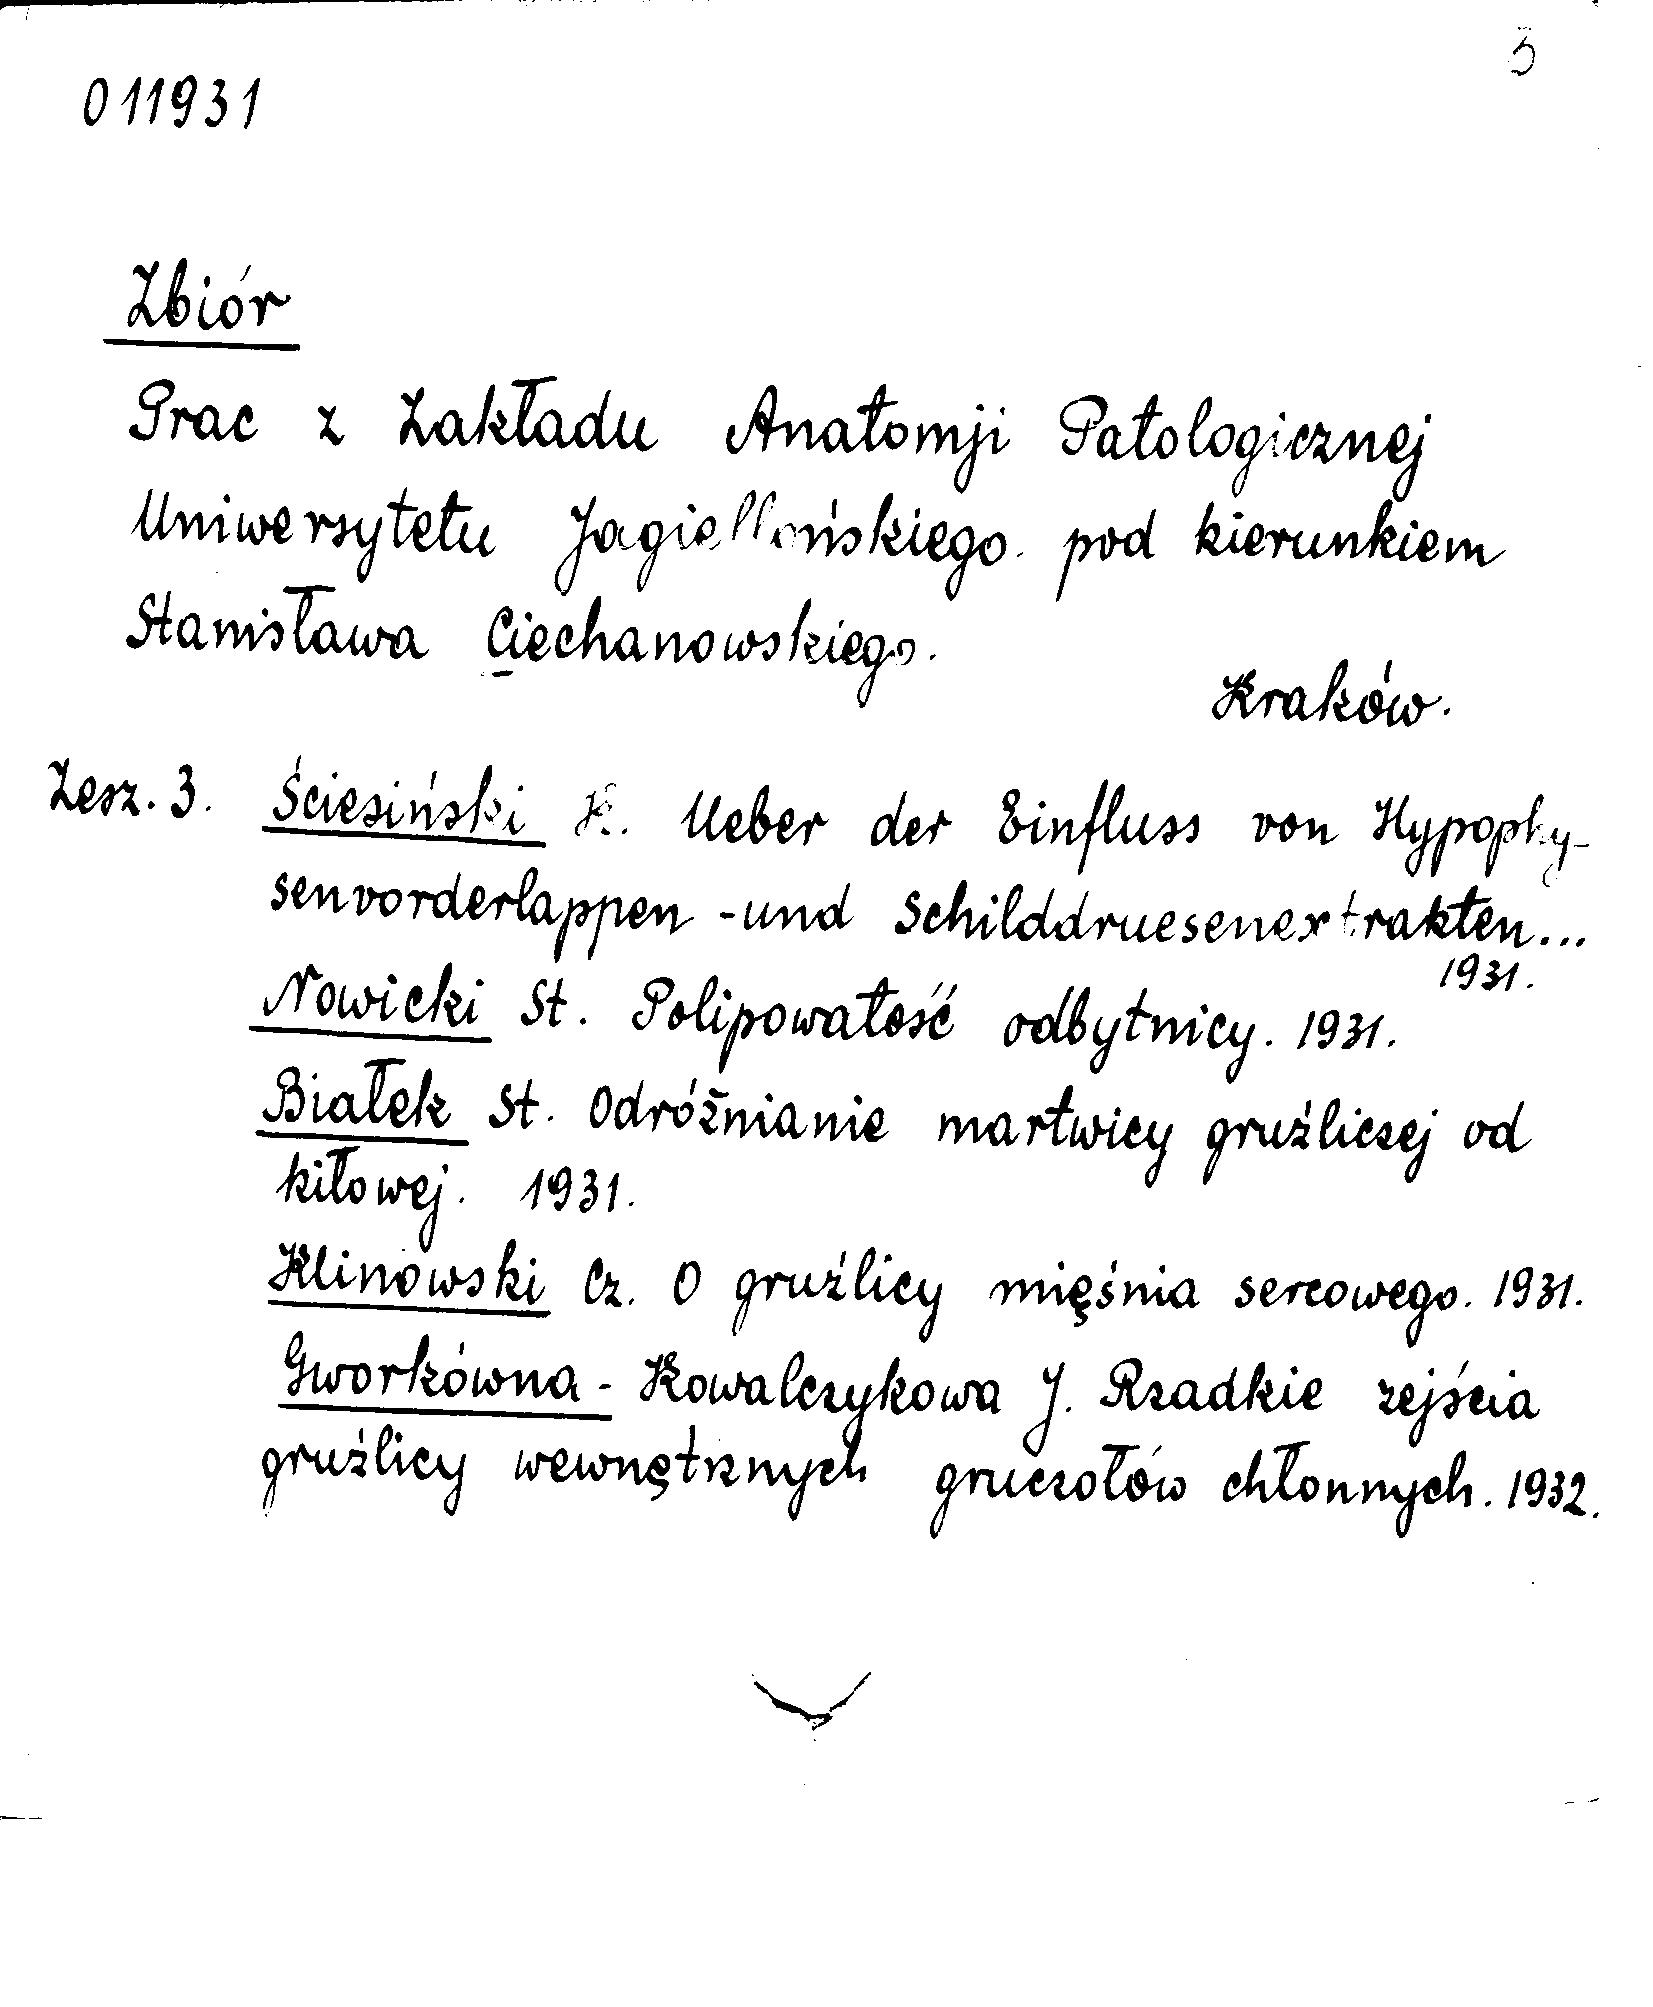 3
011931
Zbiór
Prac z Zakładu Anatomji Patologicznej
Uniwersytetu Jagiellońskiego pod kierunkiem
Stanisława Ciechanowskiego.
Kraków.
Zesz. 3. Ściesiński K. Ueber der Einfluss von Hypophy-
senvorderlappen - und Schilddruesenextrakten...
1931.
Nowicki St. Polipowatość odbytnicy. 1931.
Białek St. Odróżnianie martwicy gruźliczej od
kiłowej. 1931.
Klinowski Cz. O gruźlicy mięśnia sercowego. 1931.
Gworkówna - Kowalczykowa J. Rzadkie zejścia
gruźlicy wewnętrznych gruczołów chłonnych. 1932.